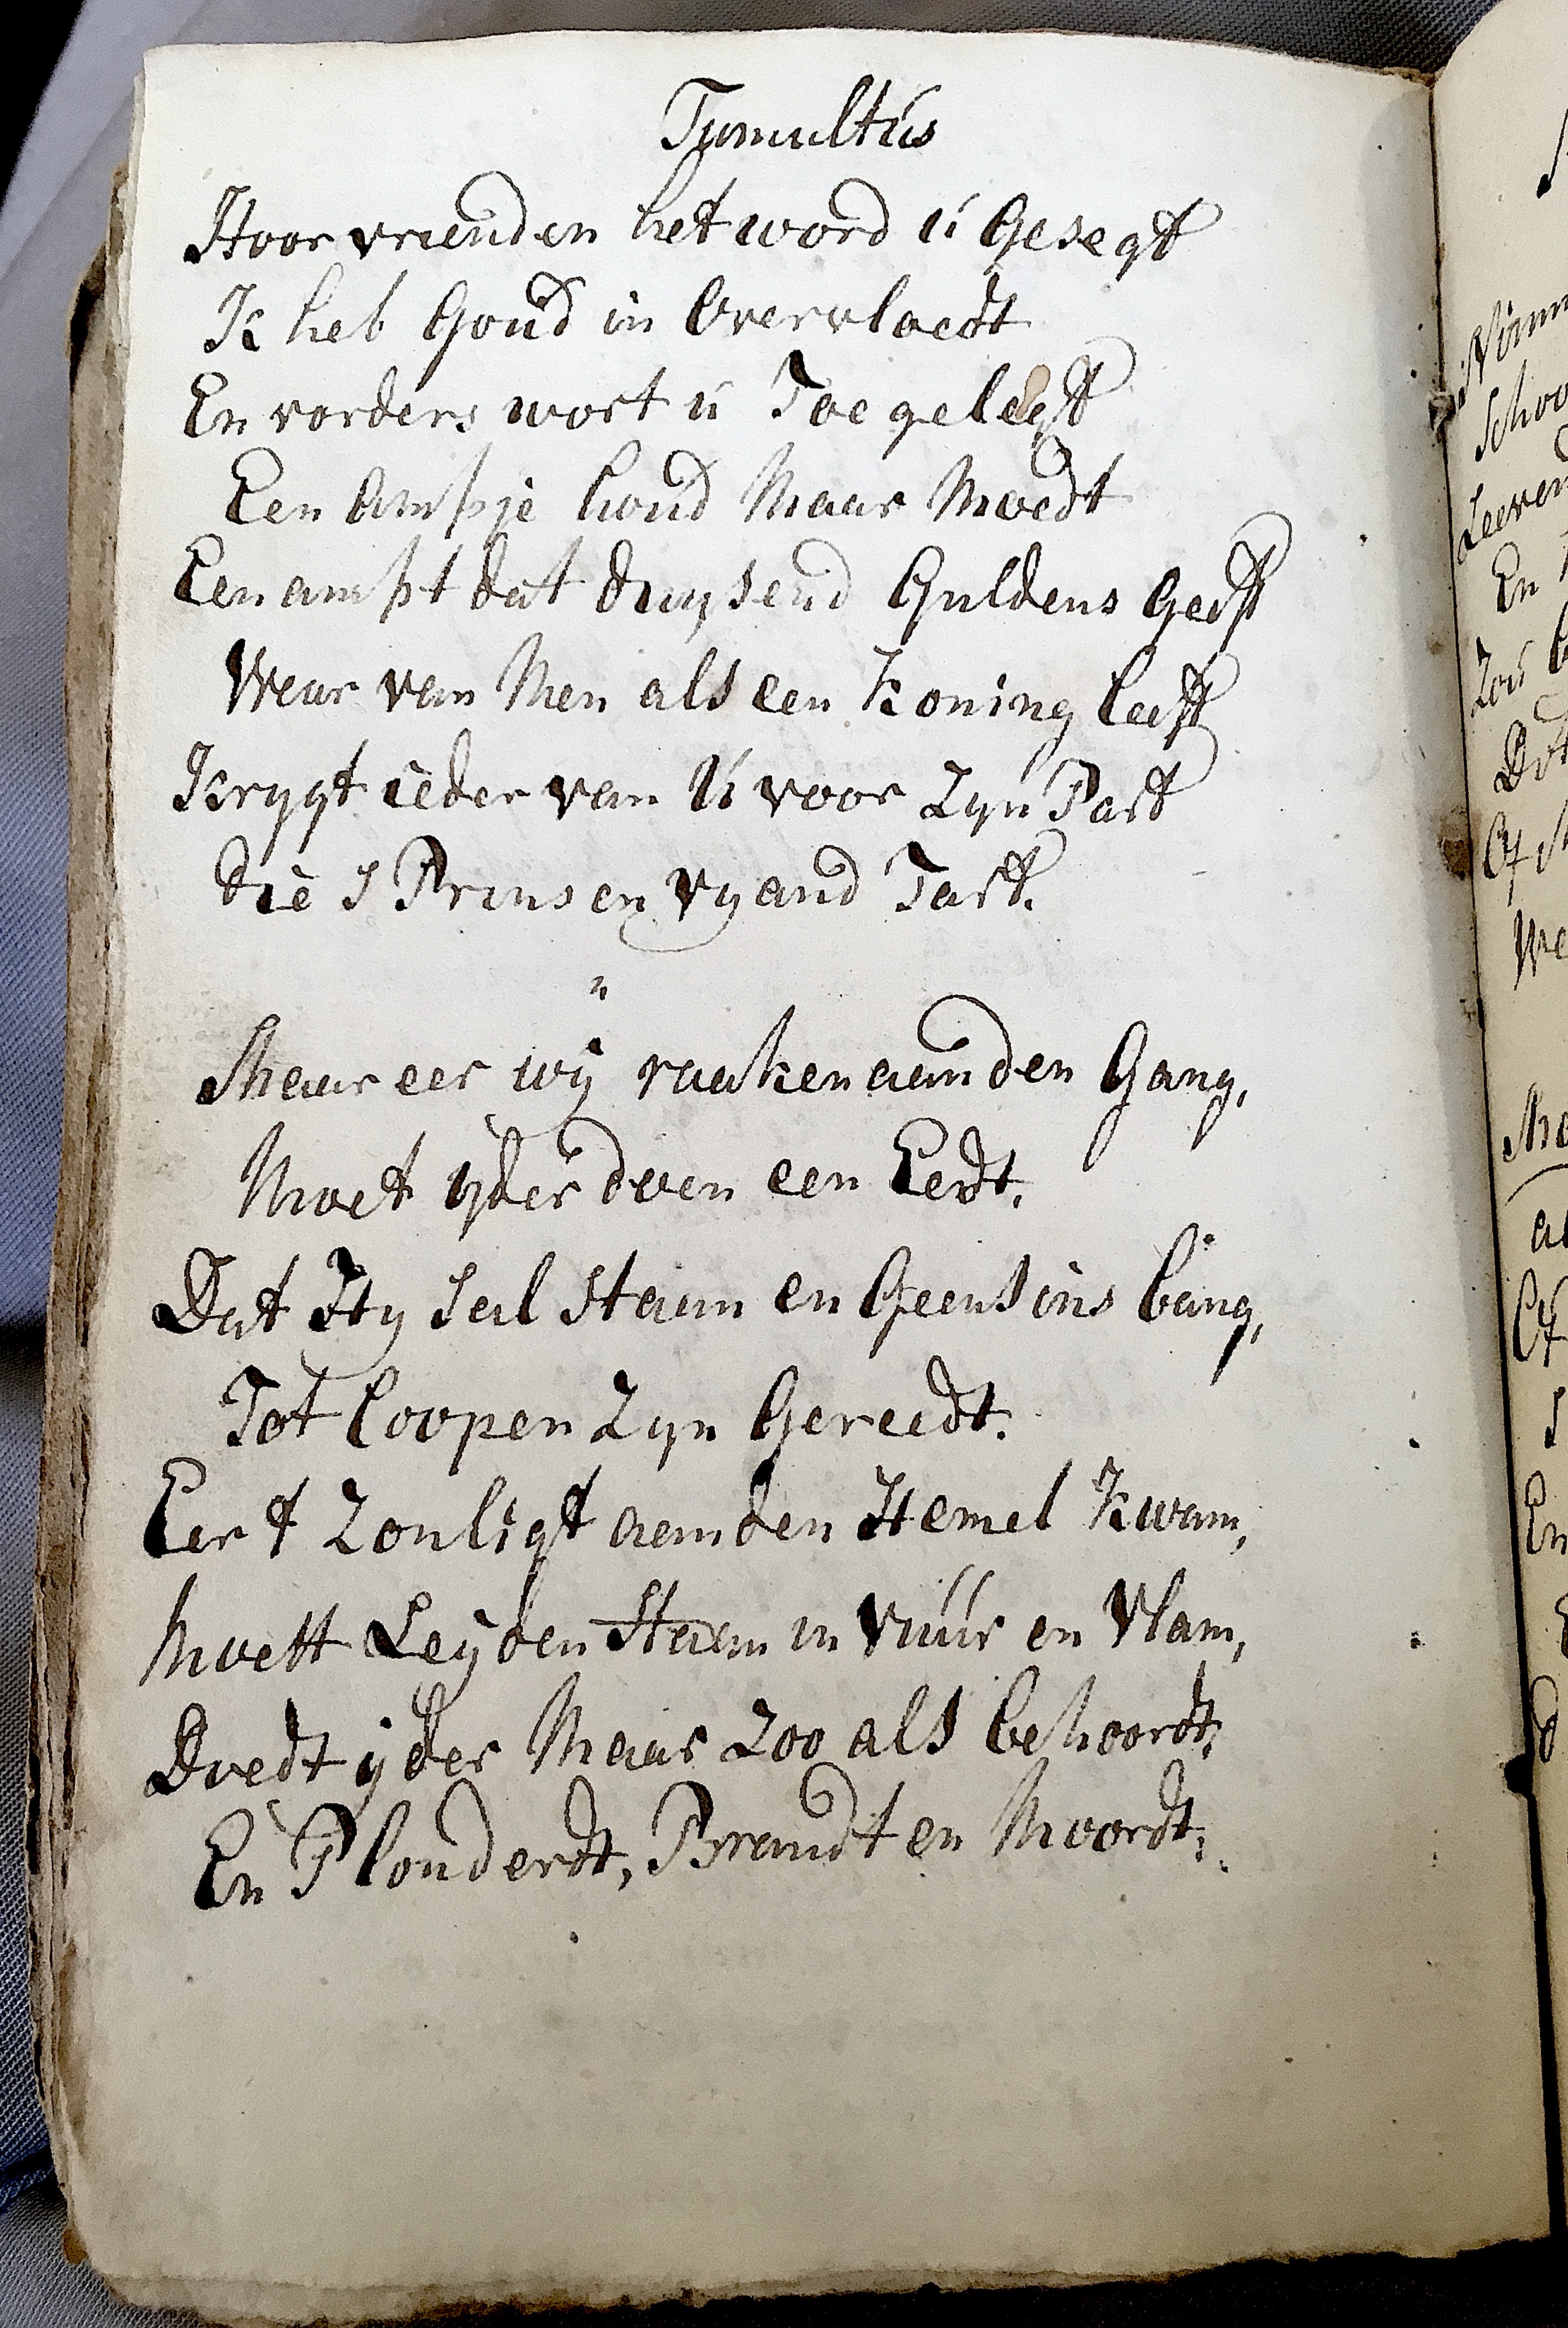 Tumultús
Hoor vrienden het word ú Gesegt
Ik heb Goud in Overvloedt
En vorders wort ú Toegelegt
Een Ampje houd Maar Moedt
Een ampt dat duysend Guldens Geeft
Waar van Men als een Koning leeft
Krygt ieder van Ú voor Zyn Part
die S Prinsen vyand Tart.
Maar eer wij raaken aan den Gang,
Moet yder doen een Eedt.
Dat Hy Sal Staan en Geensins bang,
Tot loopen Zyn Gereedt.
Eer t Zonligt aan den Hemel Kwam,
Moett Leyden Staan in vuúr en Vlam,
Doedt yder Maar Zoo als behoordt,
En Plonderdt, Brandt en Moordt.
Of
We
En